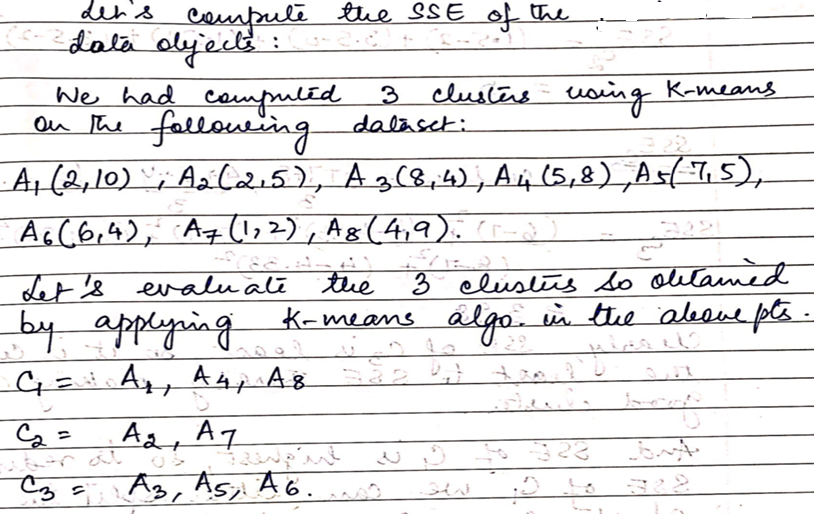 Let's compute the SSE of the
data objects :
We had computed 3 clusters using K-means
on the following dataset:
A1 (2,10) , A2 (2,5), A3 (8,4), A4 (5,8), A5(7,5),
A6 (6,4), A7 (1,2), A8 (4,9).
Let's evaluate the 3 clusters so obtained
by applying K-means algo. in the above pts.
C1 = A1, A4, A8
C2 = A2, A7
C3 = A3, A5, A6.